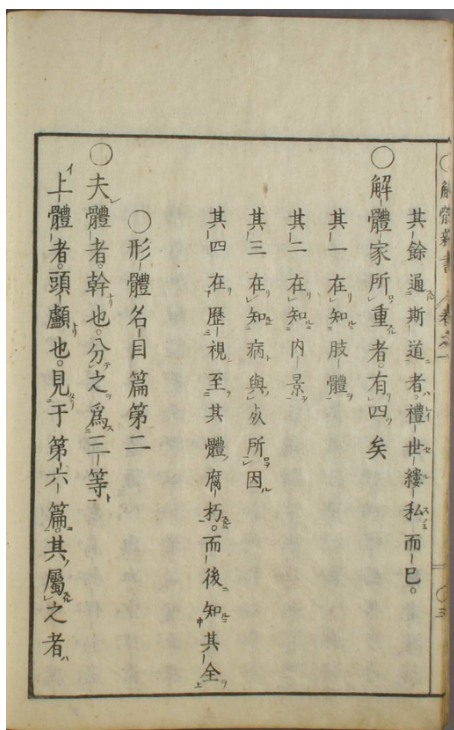 解體新書 卷之一 〇三
其餘通斯道者。禮世縷私而已。
〇解體家所重者。有四矣
其一在知肢體
其二在知内景
其三在知病與所因
其四在歷視至其體腐朽。而後知其全
〇形體名目篇第二
〇夫體者。幹也。分之爲三等
上體者。頭顱也。見于第六篇。其屬之者